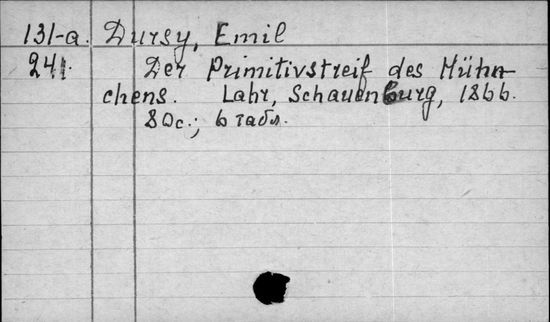 131-a. Dursy, Emil
241. Der Primitivstreif des Hühn-
chens. Lahr, Schauenburg, 1866.
80c.; 6 табл.